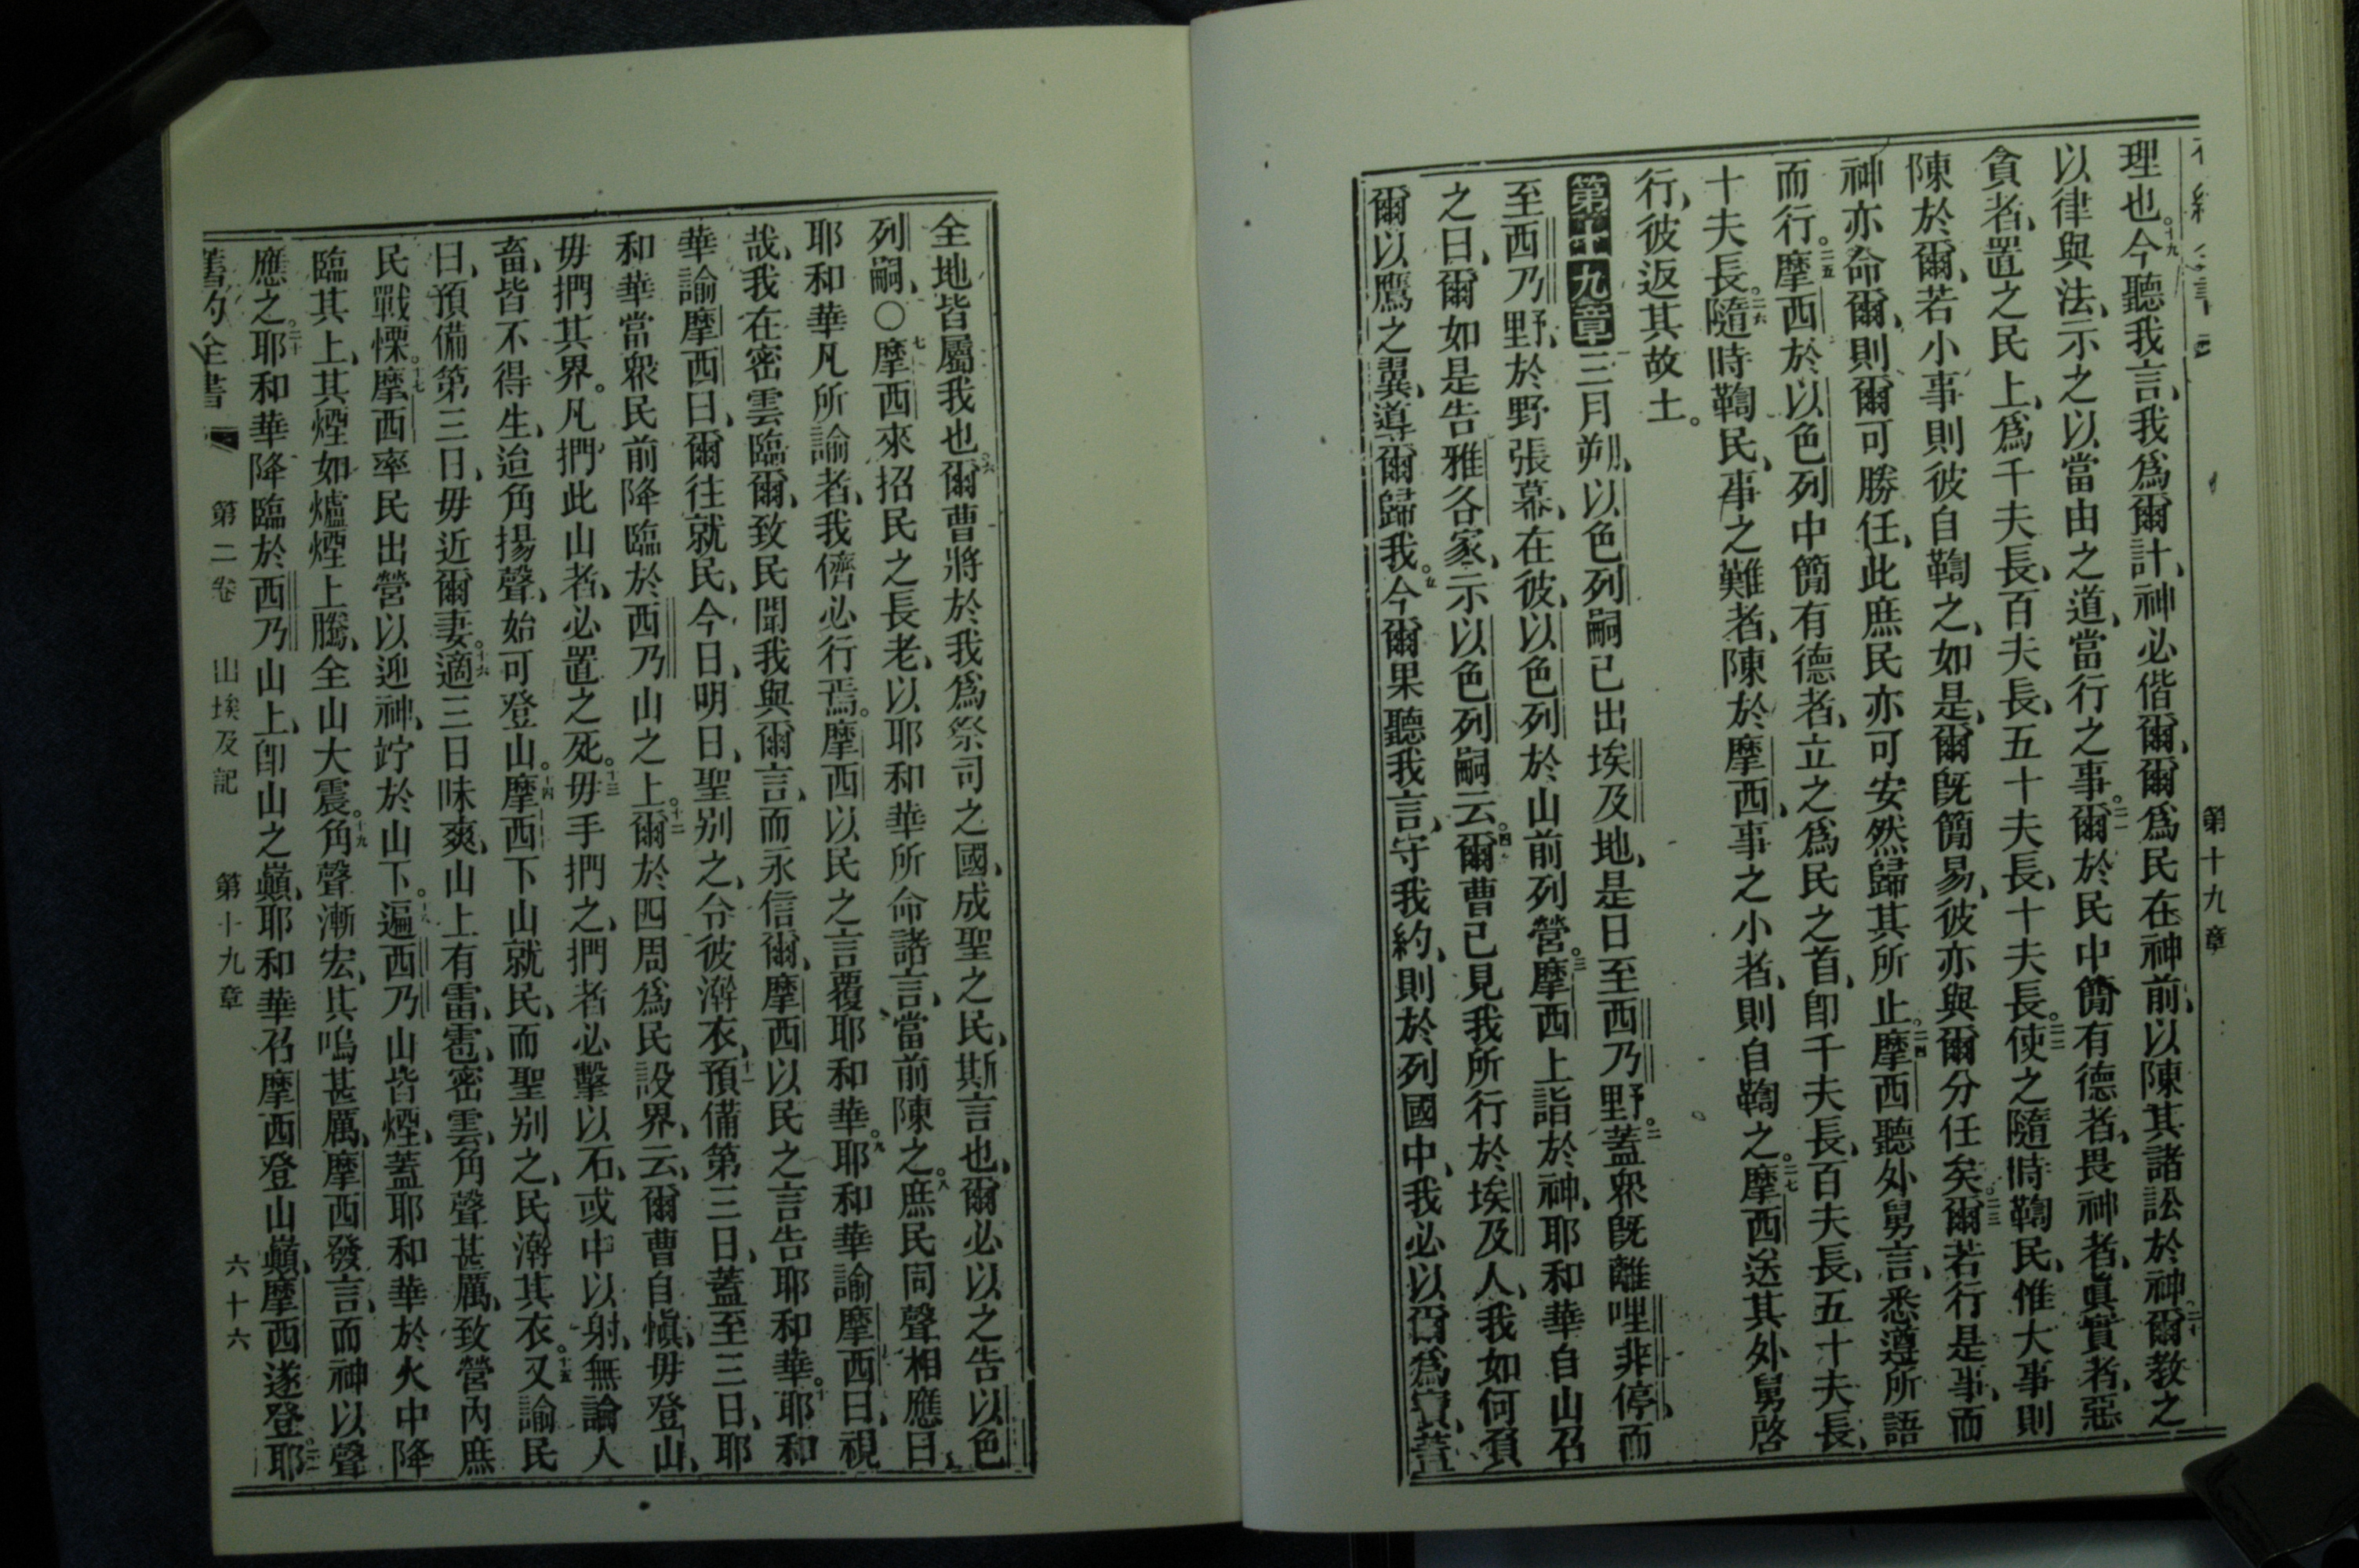 第十九章
理也。十九今聽我言、我爲爾計、神必偕爾、爾爲民在神前、以陳其諸訟於神。二十爾教之
以律與法、示之以當由之道、當行之事。二一爾於民中簡有德者、畏神者、眞實者、惡
貪者、置之民上、爲千夫長、百夫長、五十夫長、十夫長。二二使之隨時鞫民、惟大事則
陳於爾、若小事則彼自鞫之、如是、爾旣簡易、彼亦與爾分任矣。二三爾若行是事、而
神亦命爾、則爾可勝任、此庶民亦可安然歸其所止。二四摩西聽外舅言、悉遵所語
而行。二五摩西於以色列中簡有德者、立之爲民之首、卽千夫長、百夫長、五十夫長、
十夫長。二六隨時鞫民、事之難者、陳於摩西、事之小者、則自鞫之。二七摩西送其外舅啓
行、彼返其故土。
第十九章三月朔、以色列嗣已出埃及地、是日至西乃野。二蓋衆旣離哩非停、而
至西乃野、於野張幕、在彼、以色列於山前列營。三摩西上詣於神、耶和華自山召
之曰、爾如是告雅各家、示以色列嗣云。四爾曹已見我所行於埃及人、我如何負
爾以鷹之翼、導爾歸我。五今爾果聽我言、守我約、則於列國中、我必以爾爲寶、蓋
全地皆屬我也。六爾曹將於我爲祭司之國、成聖之民、斯言也、爾必以之告以色
列嗣、○七摩西來招民之長老、以耶和華所命諸言、當前陳之。八庶民同聲相應曰、
耶和華凡所諭者、我儕必行焉。摩西以民之言覆耶和華。九耶和華諭摩西曰、視
哉、我在密雲臨爾、致民聞我與爾言、而永信爾、摩西以民之言告耶和華。十耶和
華諭摩西曰、爾往就民、今日、明日、聖別之、令彼澣衣、十一預備第三日、蓋至三日、耶
和華當衆民前降臨於西乃山之上。十二爾於四周爲民設界、云、爾曹自愼、毋登山、
毋捫其界。凡捫此山者、必置之死。十三毋手捫之、捫者必擊以石、或中以射、無論人
畜、皆不得生、迨角揚聲、始可登山。十四摩西下山就民、而聖別之、民澣其衣。十五又諭民
曰、預備第三日、毋近爾妻。十六適三日昧爽、山上有雷、雹、密雲、角聲甚厲、致營內庶
民戰慄。十七摩西率民出營以迎神、竚於山下。十八遍西乃山皆煙、蓋耶和華於火中降
臨其上、其煙如爐煙上騰、全山大震。十九角聲漸宏、其鳴甚厲、摩西發言、而神以聲
應之。二十耶和華降臨於西乃山上、卽山之巔、耶和華召摩西登山巔、摩西遂登。二一耶
舊約全書 第二卷 出埃及記 第十九章 六十六